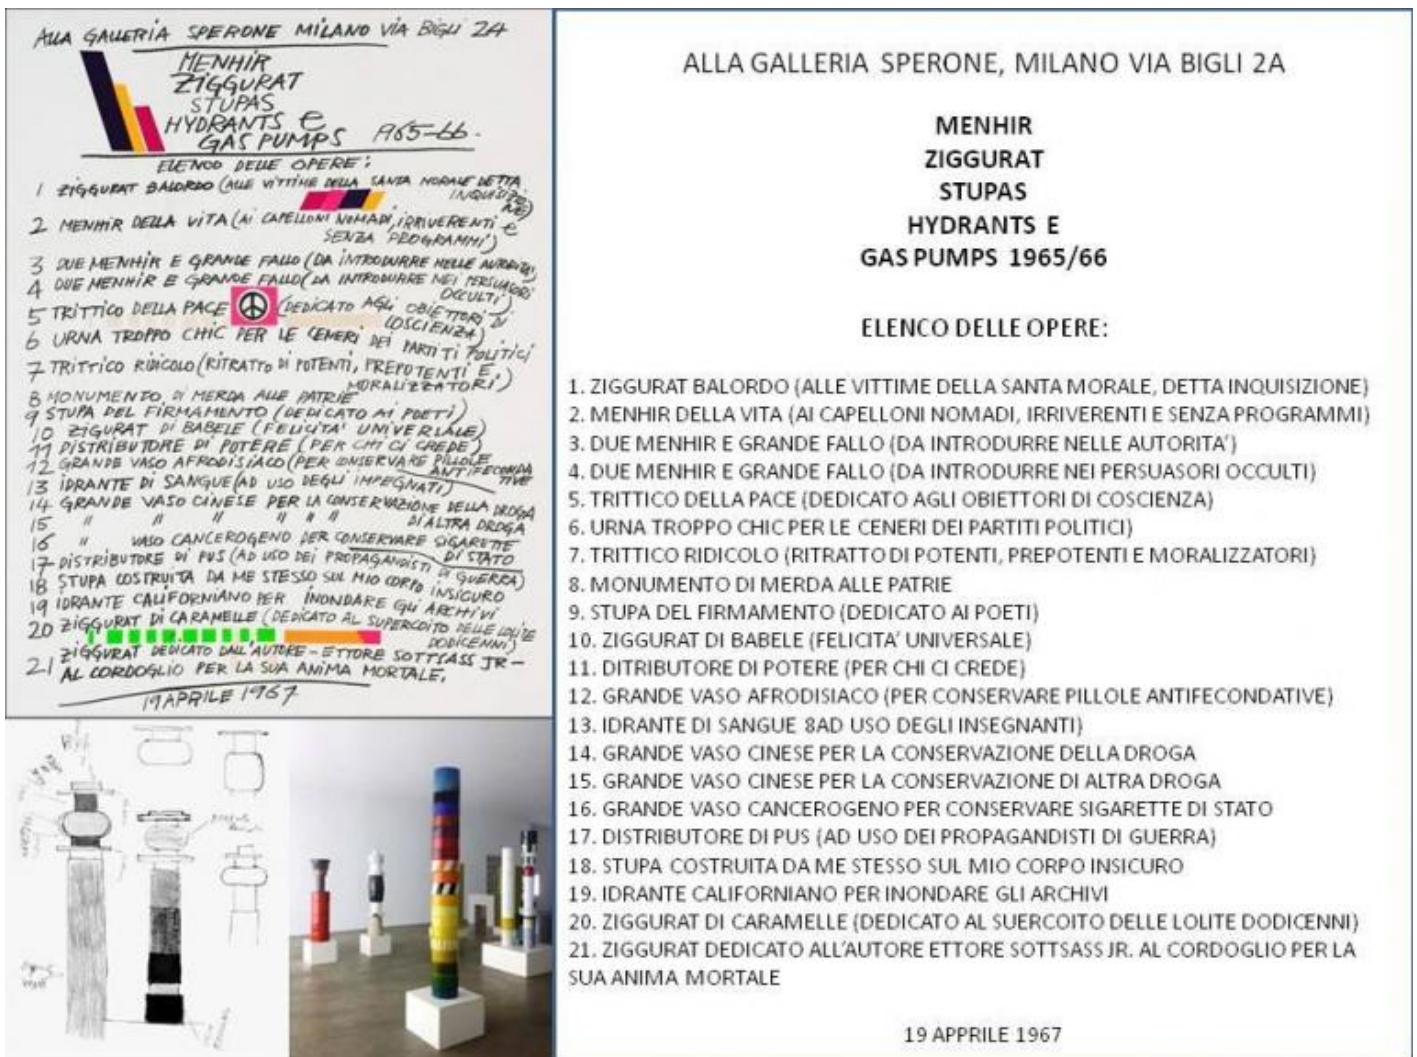 ALLA GALLERIA SPERONE MILANO VIA BIGLI 24
MENHIR
ZIGGURAT
STUPAS
HYDRANTS e
GAS PUMPS 1965-66.
ELENCO DELLE OPERE:
1 ZIGGURAT BALORDO (ALLE VITTIME DELLA SANTA MORALE DETTA
INQUISIZIO
NE)
2 MENHIR DELLA VITA (AI CAPELLONI NOMADI, IRRIVERENTI e
SENZA PROGRAMMI)
3 DUE MENHIR E GRANDE FALLO (DA INTRODURRE NELLE AUTORITA')
4 DUE MENHIR E GRANDE FALLO (DA INTRODURRE NEI PERSUASORI
OCCULTI)
5 TRITTICO DELLA PACE (DEDICATO AGLI OBIETTORI DI
COSCIENZA)
6 URNA TROPPO CHIC PER LE CENERI DEI PARTITI POLITICI
7 TRITTICO RIDICOLO (RITRATTO DI POTENTI, PREPOTENTI E
MORALIZZATORI)
8 MONUMENTO DI MERDA ALLE PATRIE
9 STUPA DEL FIRMAMENTO (DEDICATO AI POETI)
10 ZIGURAT DI BABELE (FELICITA' UNIVERSALE)
11 DISTRIBUTORE DI POTERE (PER CHI CI CREDE)
12 GRANDE VASO AFRODISIACO (PER CONSERVARE PILLOLE
ANTIFECONDA
TIVE)
13 IDRANTE DI SANGUE (AD USO DEGLI IMPEGNATI)
14 GRANDE VASO CINESE PER LA CONSERVAZIONE DELLA DROGA
15 " " " " " " DI ALTRA DROGA
16 " VASO CANCEROGENO PER CONSERVARE SIGARETTE
DI STATO
17 DISTRIBUTORE DI PUS (AD USO DEI PROPAGANDISTI DI GUERRA)
18 STUPA COSTRUITA DA ME STESSO SUL MIO CORPO INSICURO
19 IDRANTE CALIFORNIANO PER INONDARE GLI ARCHIVI
20 ZIGGURAT DI CARAMELLE (DEDICATO AL SUPERCOITO DELLE LOLITE
DODICENNI)
ZIGGURAT DEDICATO DALL'AUTORE - ETTORE SOTTSASS JR -
21 AL CORDOGLIO PER LA SUA ANIMA MORTALE.
19 APRILE 1967
ALLA GALLERIA SPERONE, MILANO VIA BIGLI 2A
MENHIR
ZIGGURAT
STUPAS
HYDRANTS E
GAS PUMPS 1965/66
ELENCO DELLE OPERE:
1. ZIGGURAT BALORDO (ALLE VITTIME DELLA SANTA MORALE, DETTA INQUISIZIONE)
2. MENHIR DELLA VITA (AI CAPELLONI NOMADI, IRRIVERENTI E SENZA PROGRAMMI)
3. DUE MENHIR E GRANDE FALLO (DA INTRODURRE NELLE AUTORITA')
4. DUE MENHIR E GRANDE FALLO (DA INTRODURRE NEI PERSUASORI OCCULTI)
5. TRITTICO DELLA PACE (DEDICATO AGLI OBIETTORI DI COSCIENZA)
6. URNA TROPPO CHIC PER LE CENERI DEI PARTITI POLITICI)
7. TRITTICO RIDICOLO (RITRATTO DI POTENTI, PREPOTENTI E MORALIZZATORI)
8. MONUMENTO DI MERDA ALLE PATRIE
9. STUPA DEL FIRMAMENTO (DEDICATO AI POETI)
10. ZIGGURAT DI BABELE (FELICITA' UNIVERSALE)
11. DITRIBUTORE DI POTERE (PER CHI CI CREDE)
12. GRANDE VASO AFRODISIACO (PER CONSERVARE PILLOLE ANTIFECONDATIVE)
13. IDRANTE DI SANGUE 8AD USO DEGLI INSEGNANTI)
14. GRANDE VASO CINESE PER LA CONSERVAZIONE DELLA DROGA
15. GRANDE VASO CINESE PER LA CONSERVAZIONE DI ALTRA DROGA
16. GRANDE VASO CANCEROGENO PER CONSERVARE SIGARETTE DI STATO
17. DISTRIBUTORE DI PUS (AD USO DEI PROPAGANDISTI DI GUERRA)
18. STUPA COSTRUITA DA ME STESSO SUL MIO CORPO INSICURO
19. IDRANTE CALIFORNIANO PER INONDARE GLI ARCHIVI
20. ZIGGURAT DI CARAMELLE (DEDICATO AL SUERCOITO DELLE LOLITE DODICENNI)
21. ZIGGURAT DEDICATO ALL'AUTORE ETTORE SOTTSASS JR. AL CORDOGLIO PER LA
SUA ANIMA MORTALE
19 APPRILE 1967